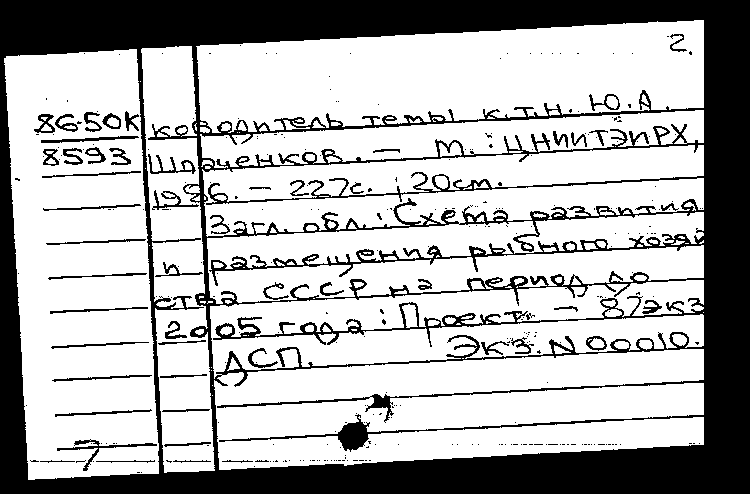 2.
86-50К ководитель темы к.т.н. Ю.А.
8593 Шпаченков. – М. : ЦНИИТЭИРХ,
1986. – 227с. ; 20см.
Загл. обл.: Схема развития
и размещения рыбного хозяй
ства СССР на период до
2005 года : Проект. – 87экз
ДСП. Экз. N 00010.
7